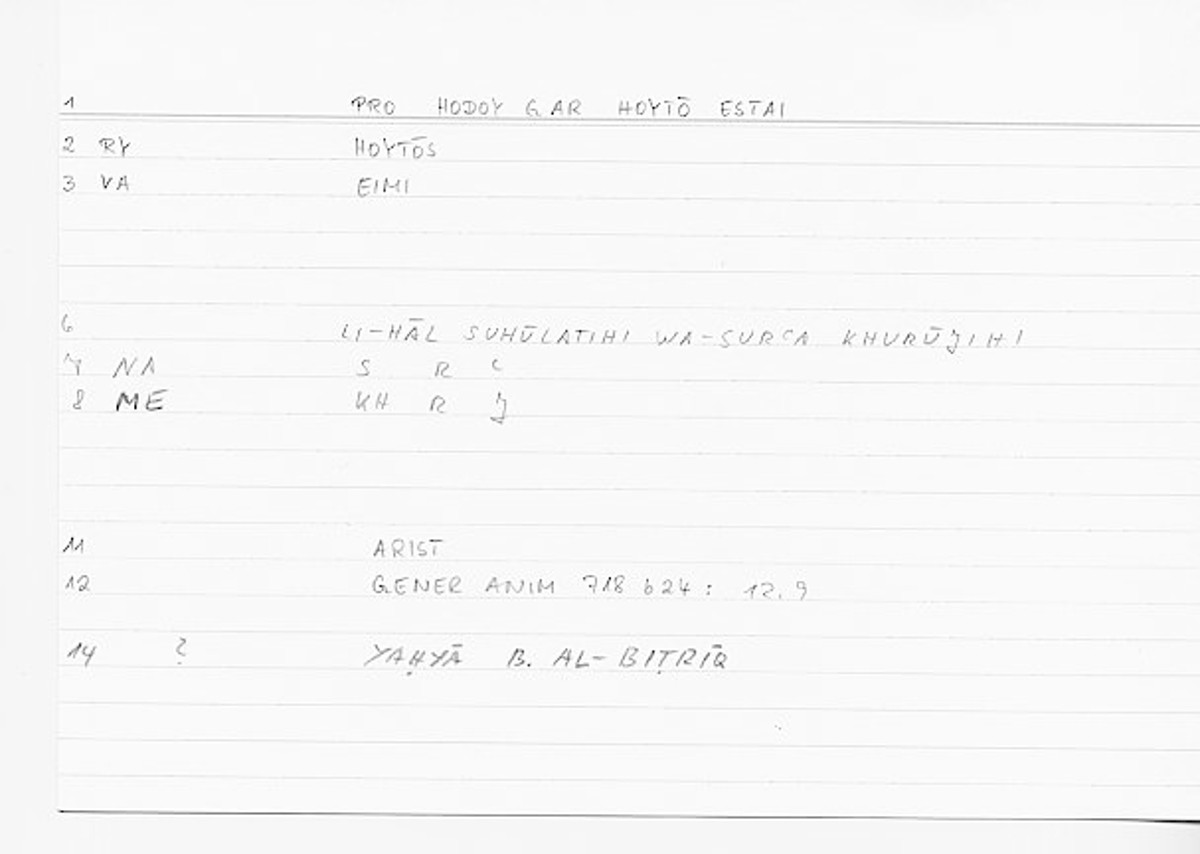 1 PRO HODOY GAR HOYTŌ ESTAI
2 RY HOYTŌS
3 VA EIMI
6 LI-HĀL SUHŪLATIHI WA-SURʿA KHURŪJIHI
7 NA S R ʿ
8 ME KH R J
11 ARIST
12 GENER ANIM 718 b24: 12.9
14 ? YAḤYĀ B. AL-BIṬRĪQ